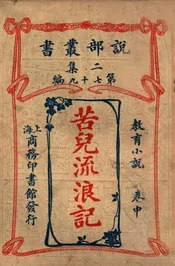 說部叢書
二集
第七十九編
教育小說
卷中
苦兒流浪記
上海
商務印書館發行